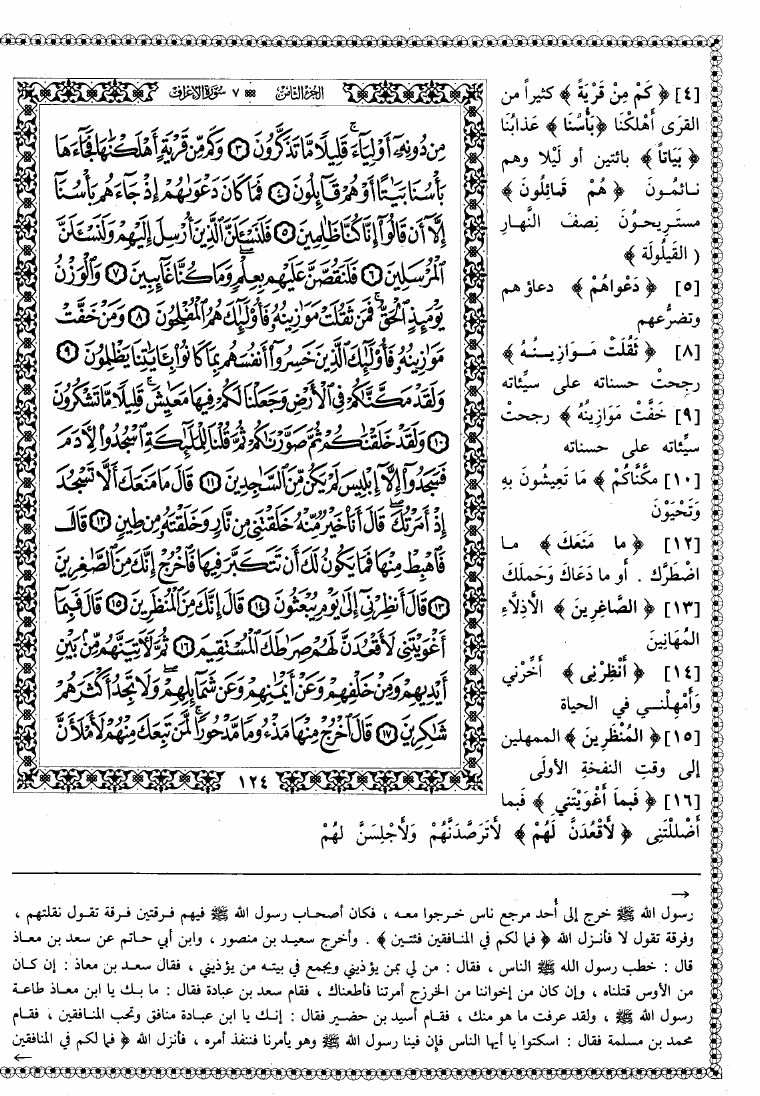 الجزء الثامن ٧ سورة الأعراف
مِن دُونِهِۦٓ أَوْلِيَآءَۗ قَلِيلًا مَّا تَذَكَّرُونَ ٣ وَكَم مِّن قَرْيَةٍ أَهْلَكْنَٰهَا فَجَآءَهَا
بَأْسُنَا بَيَٰتًا أَوْ هُمْ قَآئِلُونَ ٤ فَمَا كَانَ دَعْوَىٰهُمْ إِذْ جَآءَهُم بَأْسُنَآ
إِلَّآ أَن قَالُوٓا۟ إِنَّا كُنَّا ظَٰلِمِينَ ٥ فَلَنَسْـَٔلَنَّ ٱلَّذِينَ أُرْسِلَ إِلَيْهِمْ وَلَنَسْـَٔلَنَّ
ٱلْمُرْسَلِينَ ٦ فَلَنَقُصَّنَّ عَلَيْهِم بِعِلْمٍۖ وَمَا كُنَّا غَآئِبِينَ ٧ وَٱلْوَزْنُ
يَوْمَئِذٍ ٱلْحَقُّۚ فَمَن ثَقُلَتْ مَوَٰزِينُهُۥ فَأُو۟لَٰٓئِكَ هُمُ ٱلْمُفْلِحُونَ ٨ وَمَنْ خَفَّتْ
مَوَٰزِينُهُۥ فَأُو۟لَٰٓئِكَ ٱلَّذِينَ خَسِرُوٓا۟ أَنفُسَهُم بِمَا كَانُوا۟ بِـَٔايَٰتِنَا يَظْلِمُونَ ٩
وَلَقَدْ مَكَّنَّٰكُمْ فِى ٱلْأَرْضِ وَجَعَلْنَا لَكُمْ فِيهَا مَعَٰيِشَۗ قَلِيلًا مَّا تَشْكُرُونَ
١٠ وَلَقَدْ خَلَقْنَٰكُمْ ثُمَّ صَوَّرْنَٰكُمْ ثُمَّ قُلْنَا لِلْمَلَٰٓئِكَةِ ٱسْجُدُوا۟ لِـَٔادَمَ
فَسَجَدُوٓا۟ إِلَّآ إِبْلِيسَ لَمْ يَكُن مِّنَ ٱلسَّٰجِدِينَ ١١ قَالَ مَا مَنَعَكَ أَلَّا تَسْجُدَ
إِذْ أَمَرْتُكَۖ قَالَ أَنَا۠ خَيْرٌ مِّنْهُ خَلَقْتَنِى مِن نَّارٍ وَخَلَقْتَهُۥ مِن طِينٍ ١٢ قَالَ
فَٱهْبِطْ مِنْهَا فَمَا يَكُونُ لَكَ أَن تَتَكَبَّرَ فِيهَا فَٱخْرُجْ إِنَّكَ مِنَ ٱلصَّٰغِرِينَ
١٣ قَالَ أَنظِرْنِىٓ إِلَىٰ يَوْمِ يُبْعَثُونَ ١٤ قَالَ إِنَّكَ مِنَ ٱلْمُنظَرِينَ ١٥ قَالَ فَبِمَآ
أَغْوَيْتَنِى لَأَقْعُدَنَّ لَهُمْ صِرَٰطَكَ ٱلْمُسْتَقِيمَ ١٦ ثُمَّ لَـَٔاتِيَنَّهُم مِّنۢ بَيْنِ
أَيْدِيهِمْ وَمِنْ خَلْفِهِمْ وَعَنْ أَيْمَٰنِهِمْ وَعَن شَمَآئِلِهِمْۖ وَلَا تَجِدُ أَكْثَرَهُمْ
شَٰكِرِينَ ١٧ قَالَ ٱخْرُجْ مِنْهَا مَذْءُومًا مَّدْحُورًاۖ لَّمَن تَبِعَكَ مِنْهُمْ لَأَمْلَأَنَّ
١٢٤
[٤] ﴿ كَمْ مِنْ قَرْيَةً ﴾ كثيراً من
القرَى أَهْلكْنَا ﴿بَأْسُنَا ﴾ عَذابُنَا
﴿ بَيَاتاً ﴾ بائتين أو لَيْلا وهم
نـائمُـونَ ﴿ هُمْ قَـائِلُونَ ﴾
مستَـرِيحـوُنَ نِصفَ النَّهـارِ
( القَيلُولَة ﴾
[٥] ﴿ دَعْواهُمْ ﴾ دعاؤهم
وتضرُّعهم
[٨] ﴿ ثَقُلَتْ مَـوَازِيـنُـهُ ﴾
رجِحتْ حسناته على سيِّئاته
[٩] ﴿ خَفَّتْ مَوَازِينُهُ ﴾ رجحتْ
سيِّئاته على حسناته
[١٠] مكْنَّاكُمْ ﴾ مَا تَعِيشُونَ بِهِ
وَتَحْيَوْنَ
[١٢] ﴿ ما مَنَعَكَ ﴾ مـا
اضْطَرَّك . أو ما دَعَاكَ وَحَملَكَ
[١٣] ﴿ الصَّاغِرِينَ ﴾ الأَذِلَّاءِ
المُهَانِينَ
[١٤] ﴿ أَنْظِرْنِى ﴾ أَخِّرْني
وَأَمْهِلْنـي في الحياة
[١٥]﴿ المُنْظَرِينَ ﴾الممهلين
إلى وقتِ النفخةِ الأولَى
[١٦] ﴿ فَبِماَ أَغْوَيْتَنيِ ﴾ فَبما
أَضْلَلْتَنِى ﴿ لَأَقْعُدَنَّ لَهُمْ ﴾ لَأَتَرَصَّدَنَّهُمْ وَلَأَجْلِسَنَّ لهُمْ
→
رسول الله ﷺ خرج إلى أُحد مرجع ناس خـرجوا معـه ، فكان أصحـاب رسول الله ﷺ فيهم فـرقتين فـرقة تقـول نقلتهم ،
وفرقة تقول لا فأنـزل الله ﴿ فما لكم في المنـافقين فئتـين ﴾ . وأخرج سعيـد بن منصور ، وابن أبي حاتم عن سعد بن معاذ
قال : خطب رسول الله ﷺ الناس ، فقال : من لي بمن يؤذيني ويجمع في بيتـه من يؤذيني ، فقال سعـد بن معاذ : إن كـان
من الأوس قتلناه ، وإن كان من إخواننا من الخزرج أمرتنا فأطعناك ، فقام سعد بن عبادة فقال : ما بـك يا ابن معـاذ طاعـة
رسول الله ﷺ ، ولقد عرفت ما هو منك ، فقـام أسيد بن حضـير فقال : إنـك يا ابن عبـادة منافق وتحب المنـافقين ، فقـام
محمد بن مسلمة فقال : اسكتوا يا أيها الناس فإن فينا رسول الله ﷺ وهو يأمرنا فننفذ أمره ، فأنزل الله ﴿ فما لكم في المنافقين
←